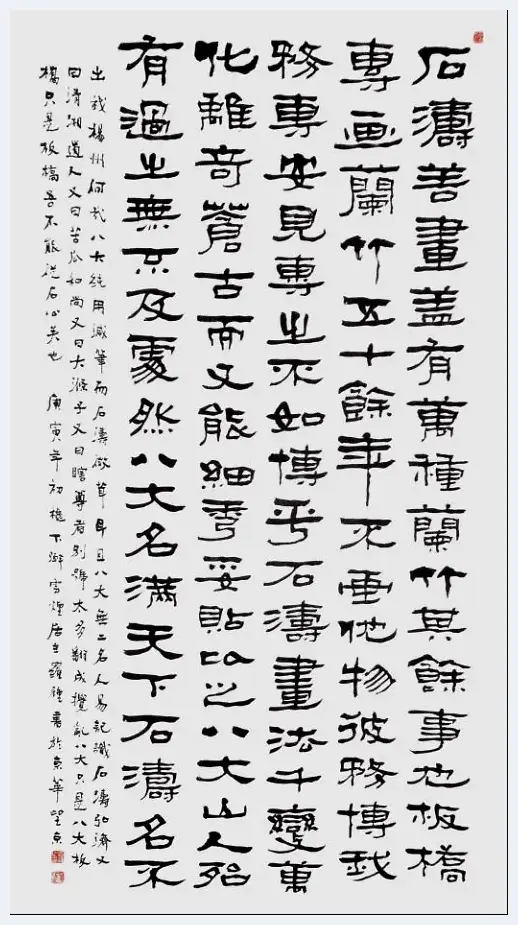 石濤善畫盖有萬種蘭竹其餘事也板橋
專画蘭竹五十餘年不畫他物彼務博我
務專安見專之不如博乎石濤畫法千變萬
化離奇蒼古而又能細秀妥貼比之八大山人殆
有過之無不及處然八大名滿天下石濤名不
出我楊州何哉八大純用減筆而石濤微茸耳且八大無二名人易記識石濤弘濟又
曰清湘道人又曰苦瓜和尚又曰大滌子又曰瞎尊者別號太多翻成攪亂八大只是八大板
橋只是板橋吾不能從石公矣也 庚寅年初秋下澣 煙居主羅 書於京華望京